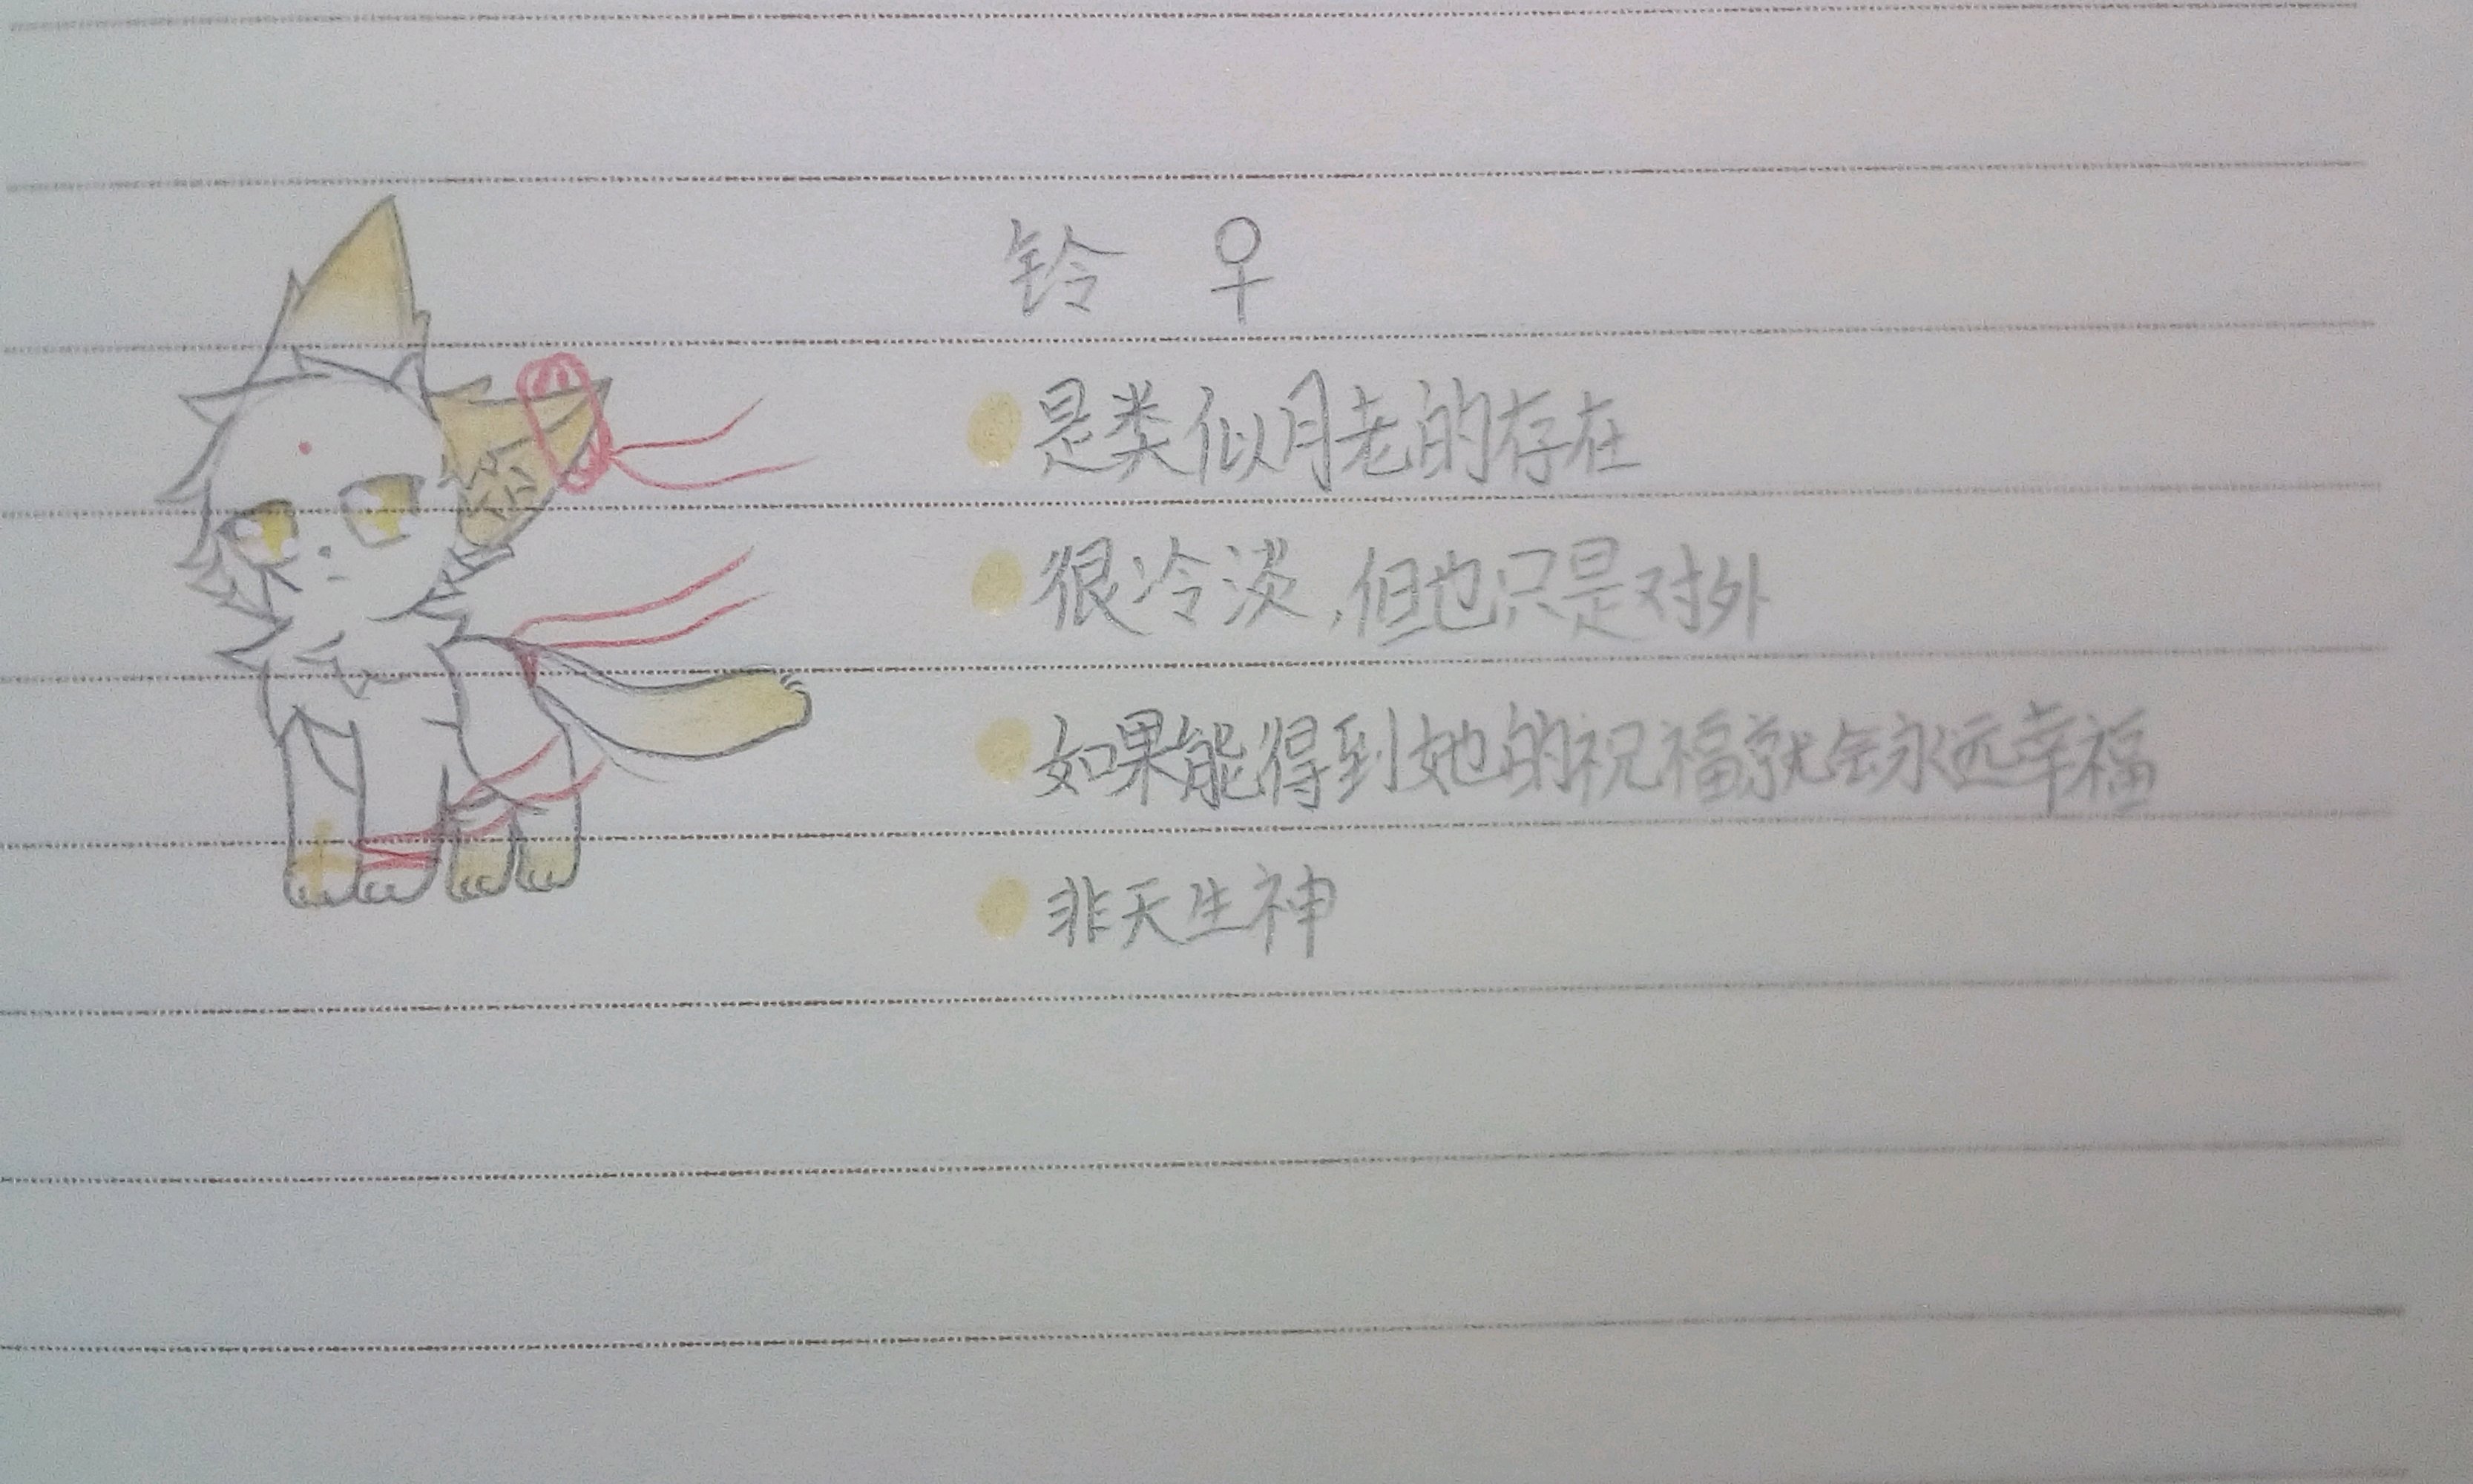 铃 ♀
是类似月老的存在
很冷淡,但也只是对外
如果能得到她的祝福就会永远幸福
非天生神